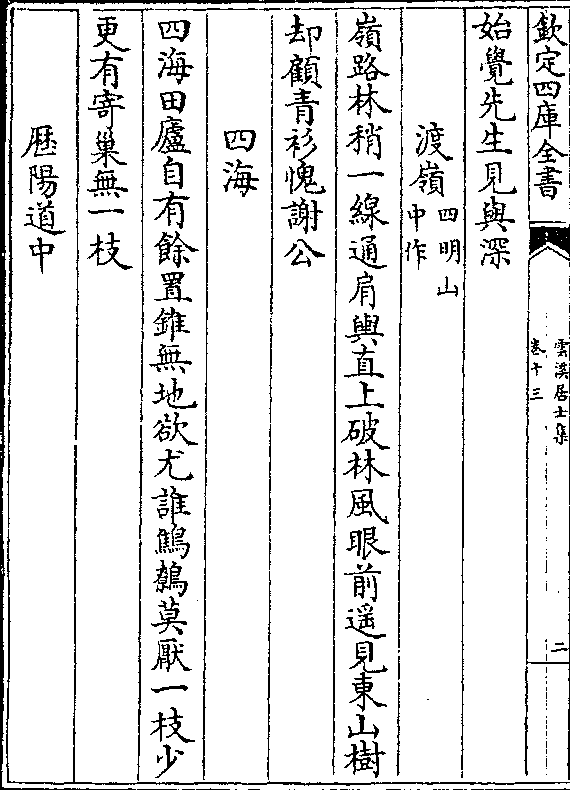 欽定四庫全書
雲溪居士集
卷十三
二
始覺先生見與深
渡嶺四明山中作
嶺路林稍一線通肩輿直上破林風眼前遥見東山樹
却顧青衫愧謝公
四海
四海田廬自有餘置錐無地欲尤誰鷦鷯莫厭一枝少
更有寄巢無一枝
歴陽道中